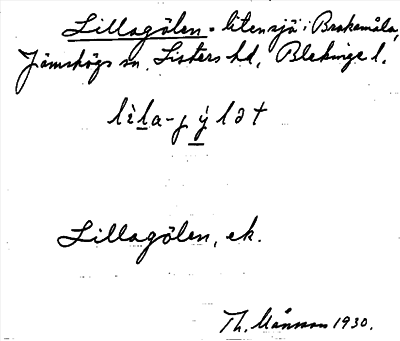 Lillagölen - liten sjö i Brokamåla,
Jämshögs sn, Listers hd, Blekinge l.
lìla-jỳlət
Lillagölen, ek.
Th. Månsson 1930.